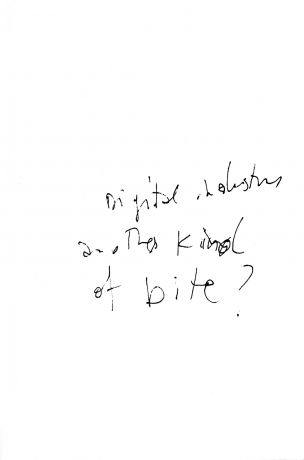 Digital industry
another kind
of bite?